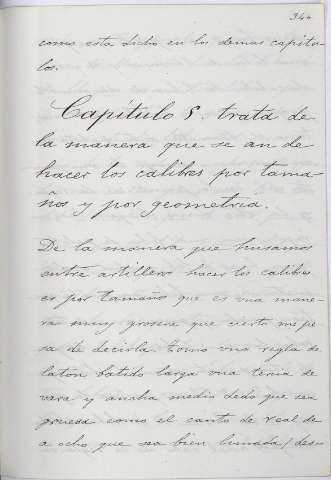 344
como esta dicho en los demas capitu-
los.
Capítulo 8. trata de
la manera que se an de
hacer los calibres por tama-
ños y por geometria.
De la manera que husamos
entre artilleros hacer los calibres
es por tamaños que es vna mane-
ra muy grosera que cierto me pe-
sa de decirla. Tomo vna regla de
laton batido larga vna tercia de
vara y ancha medio dedo que sea
gruesa como el canto de real de
a ocho que sea bien limada / des